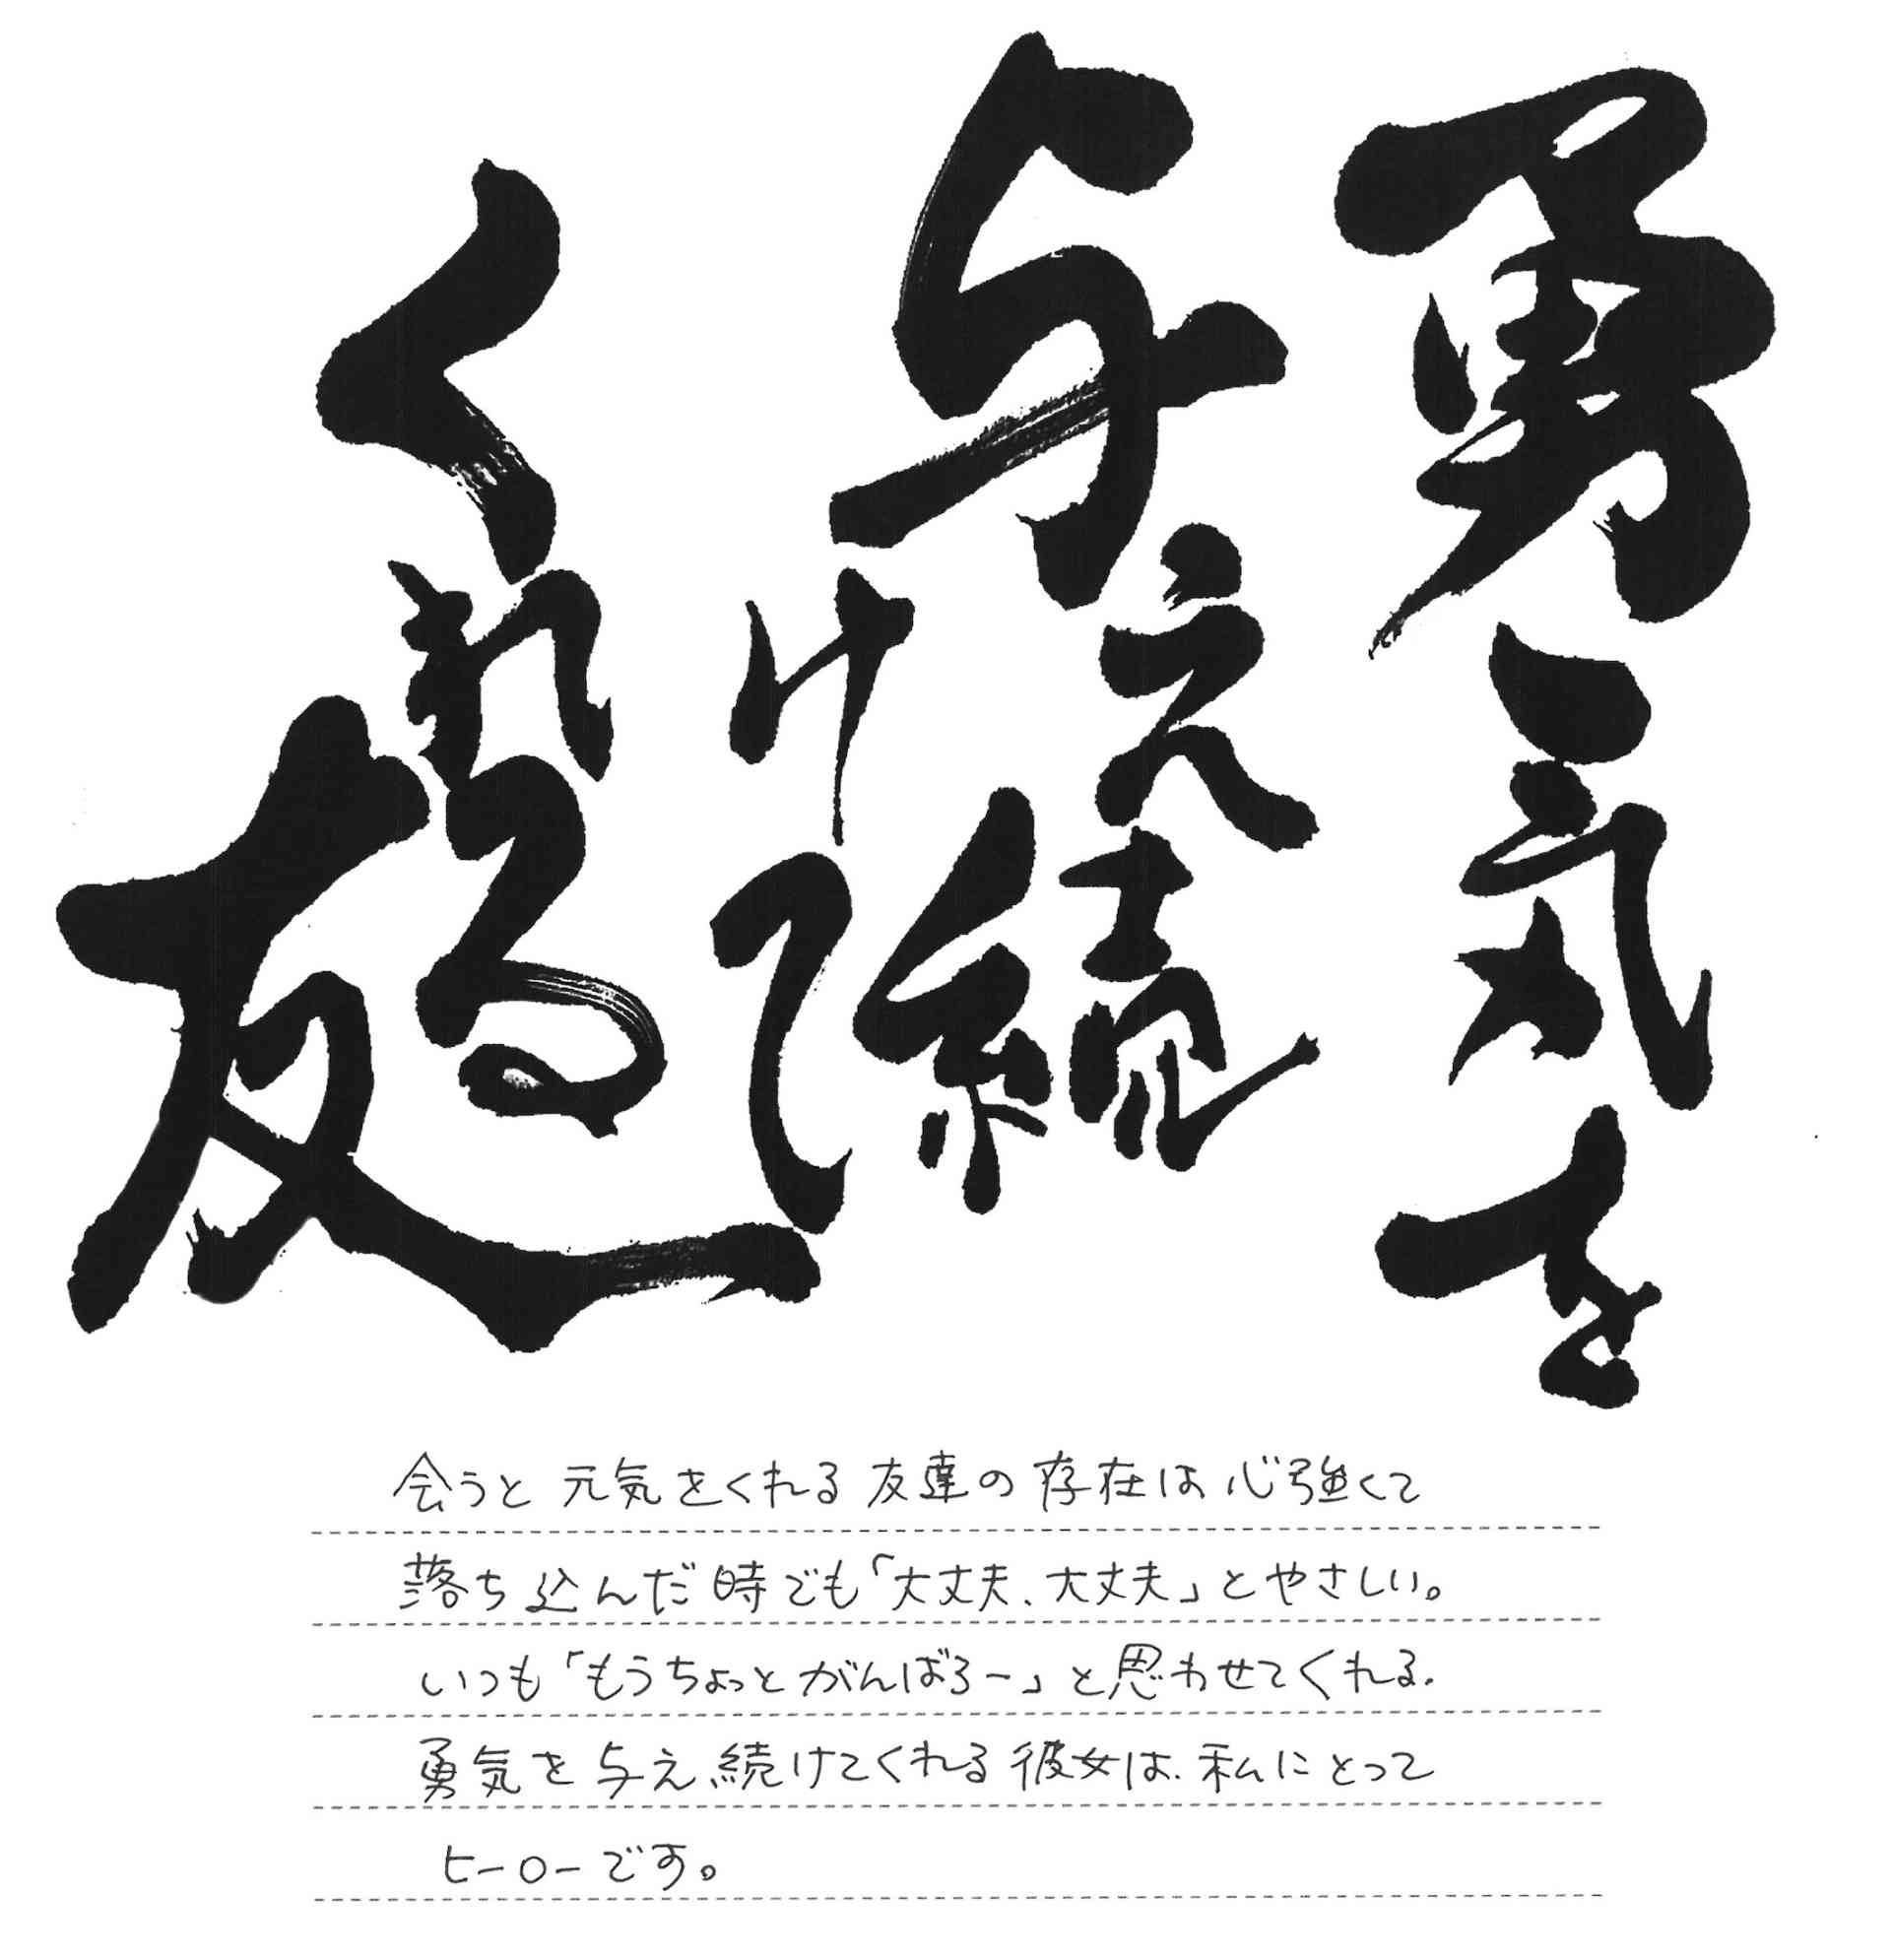 勇気を
与え続
けて
くれる
友
会うと元気をくれる友達の存在は心強くて
落ち込んだ時でも「大丈夫、大丈夫」とやさしい。
いつも「もうちょっとがんばろー」と思わせてくれる。
勇気を与え続けてくれる彼女は、私にとって
ヒーローです。